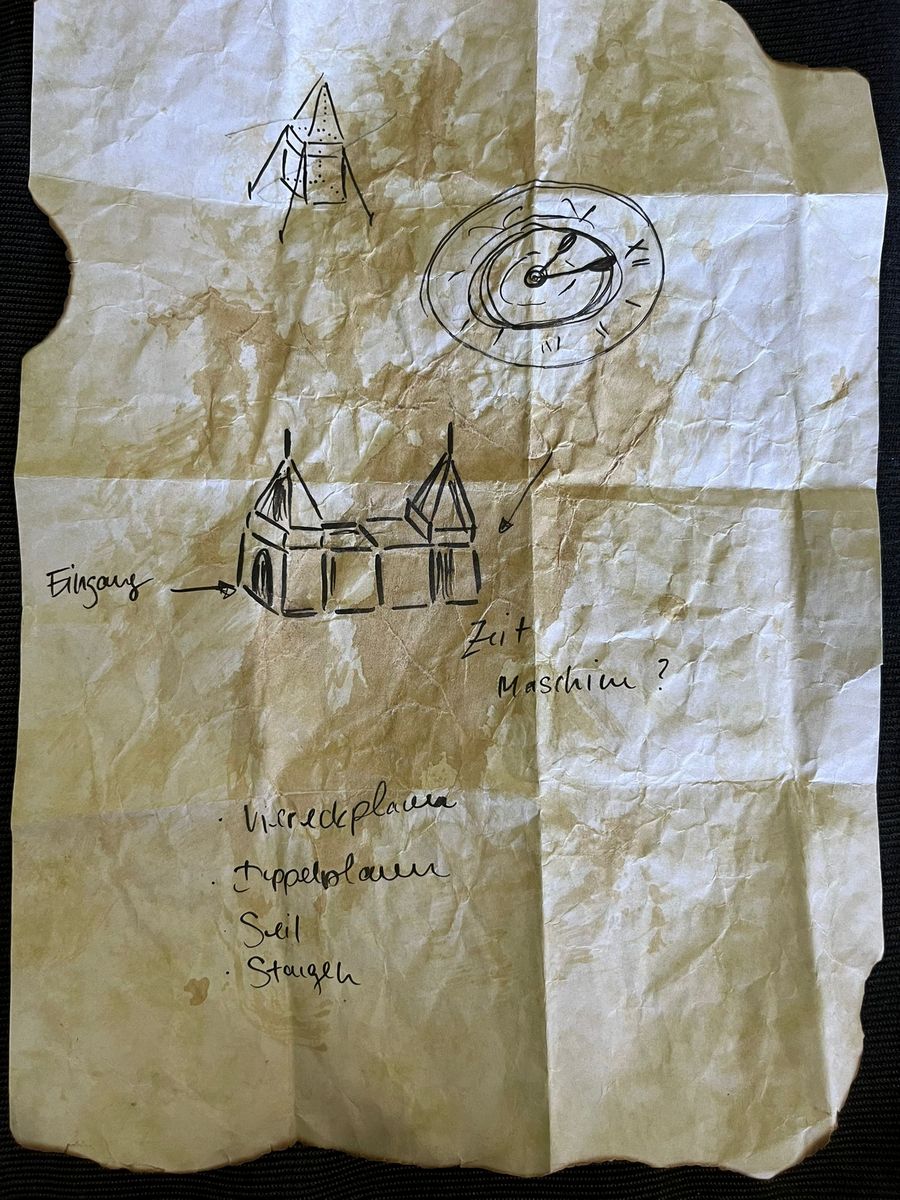 Eingang
Zeit
Maschine ?
· Viereckplanen
· Doppelplanen
· Seil
· Stangen